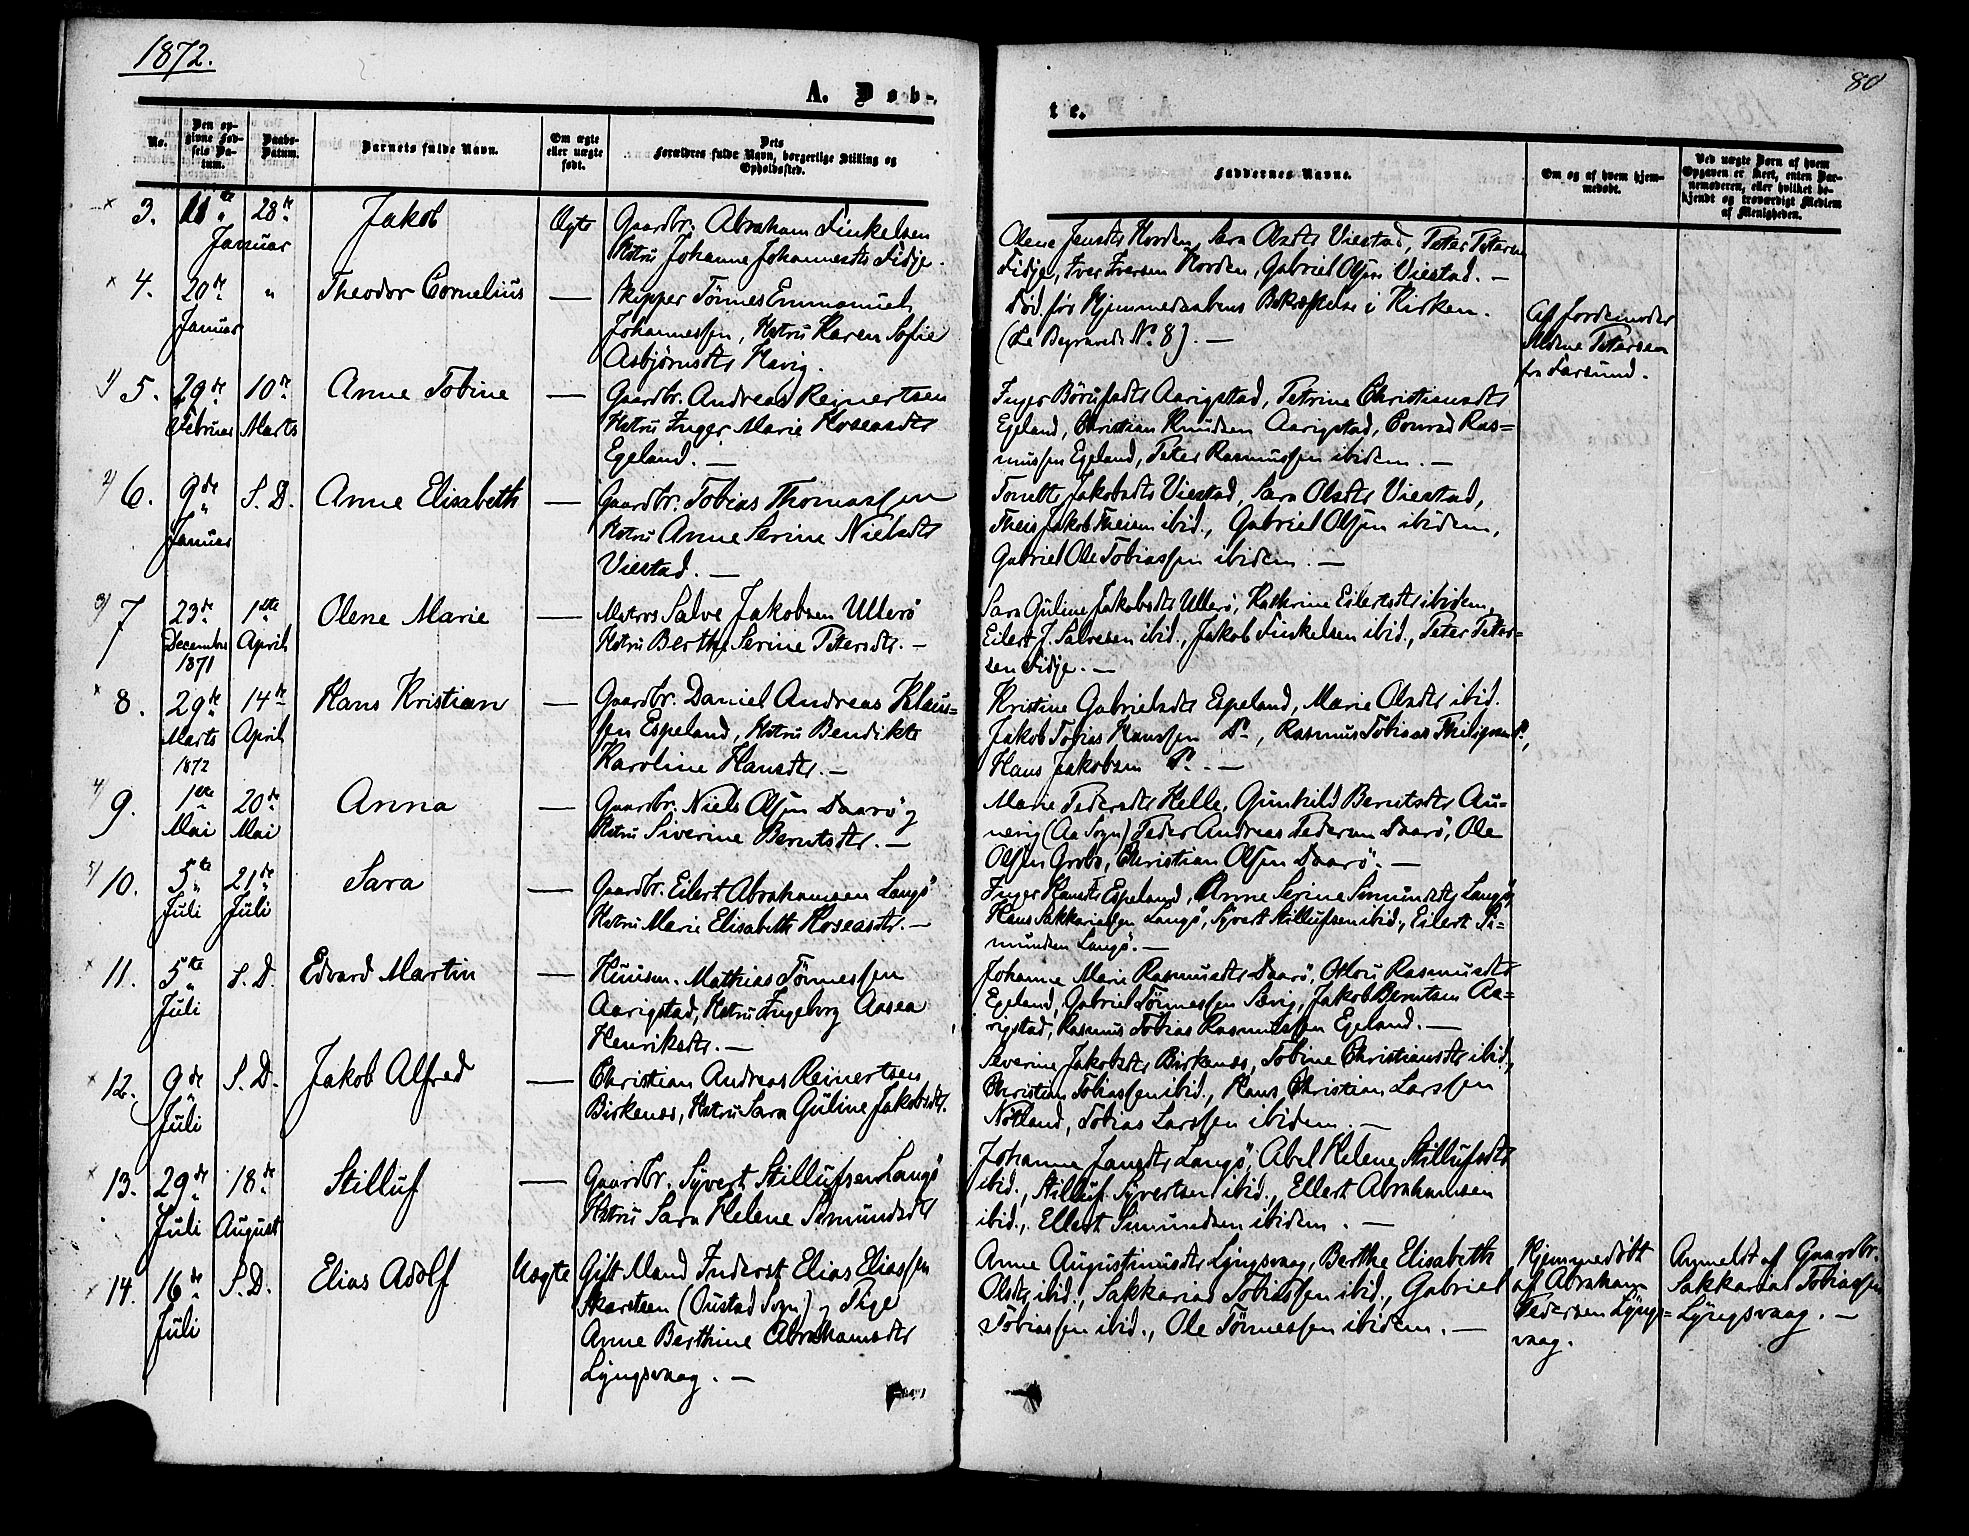 1872.
A. Døb-
No.
Den opgivne Fødsels Datum.
Daabs-Datum.
Barnets fulde Navn.
Om ægte eller uægte født.
Dets Forældres fulde Navn, borgerlige Stilling og Opholdssted.
3. 28de Januar Jakob Ægte Gaardbr. Abraham Finkelsen
Hstru Johanne Johannesdtr Fidje.
4. 20de Januar " Theodor Cornelius — Skipper Tönnes Emmanuel
Johannessen, Hstru Karen Sofie
Asbjørnsdtr Havig.
5. 29de Februar 10de Marts Anne Tobine — Gaardbr. Andreas Reinertsen
Hstru Inger Marie Hoseasdtr
Egeland. —
6. 9de Januar S. D. Anne Elisabeth — Gaardbr. Tobias Thomassen
Hstru Anne Serine Nielsdtr
Viestad. —
7 23de December 1871 1ste April Olene Marie — Matros Salve Jakobsen Ullerö
Hstru Berthe Serine Petersdtr. —
8. 29de Marts 1872 14de April Hans Kristian — Gaardbr. Daniel Andreas Klaus=
sen Espeland, Hstru Bendikte
Karoline Hansdtr. —
9. 1ste Mai 20de Mai Anna — Gaardbr. Niels Olsen Daarö og
Hstru Siverine Berntsdtr. —
10. 5te Juli 21de Juli Sara — Gaardbr. Eilert Abrahamsen Langö
Hstru Marie Elisabeth Hoseasdtr. —
11. 5te Juli S. D. Edvard Martin — Huusm. Mathias Tönnessen
Aarigstad, Hstru Ingeborg Aasea
Henriksdtr. —
12. 9de Juli S. D. Jakob Alfred — Christian Andreas Reinertsen
Birkenes, Hstru Sara Guline Jakobsdtr.
13. 29de Juli 18de August Stilluf — Gaardbr. Syvert Stillufsen Langö
Hstru Sara Helene Simundsdtr
14. 16de Juli S. D. Elias Adolf Uægte Gift Mand Inderst Elias Eliassen
Skarstsen (Oustad Sogn) og Pige
Anne Berthine Abrahamsdtr
Lyngsvaag. —
80
te.
Faddernes Navne.
Om og af hvem hjemmedøbt.
Ved uægte Born af hvem Opgaven er skeet, enten Barnemoderen, eller hvilket bekjendt og troværdigt Medlem af Menigheden.
Olene Jensdtr Norden, Sara Olsdtr Viestad, Peter Petersen
Fidje, Iver Iversen Norden, Gabriel Olsen Viestad. —
Død før Hjemmedaabens Bekræftelse i Kirken.
(Se Begravede No 8). —
Af Jordemoder
Aldine Petersen
fra Farsund.
Inger Börufsdtr Aarigstad, Petrine Christiansdtr
Egeland, Christian Knudsen Aarigstad, Conrad Ras=
mussen Egeland, Peter Rasmussen ibidem. —
Tonette Jakobsdtr Viestad, Sara Olsdtr Viestad,
Theis Jakob Theisen ibid., Gabriel Olsen ibidem,
Gabriel Ole Tobiassen ibidem. —
Sara Guline Jakobsdtr Ullerö, Kathrine Eilertsdtr ibidem,
Eilert J. Salvesen ibid., Jakob Finkelsen ibid., Peter Peter=
sen Fidje. —
Kristine Gabrielsdtr Espeland, Marie Olsdtr ibid.
Jakob Tobias Hanssen Do, Rasmus Tobias Do,
Hans Jakobsen Do. —
Marie Pedersdtr Helle, Gunhild Berntsdtr Au=
nevig (Aa Sogn) Peder Andreas Pedersen Daarö, Ole
Olsen Grobo, Christian Olsen Daarö. —
Inger Hansdtr Espeland, Anne Serine Simundsdtr Langö,
Hans Sakkariassen Langö, Syvert Stillufsen ibid., Eilert Si=
mundsen Langö. —
Johanne Marie Rasmusdtr Daarö, Rasmusdtr
Egeland, Gabriel Tönnessen Bevig, Jakob Berntsen Aa=
rigstad, Rasmus Tobias Rasmussen Egeland. —
Severine Jakobsdtr Birkenes, Tobine Christiansdtr ibid.,
Christian Tobiassen ibid., Hans Christian Larssen
Nötland, Tobias Larssen ibidem. —
Johanne Jansdtr Langö, Abel Helene Stillufsdtr
ibid., Stilluf Syvertsen ibid., Ellert Abrahamsen
ibid., Ellert Simundsen ibidem. —
Anne Augustinusdtr Lyngsvaag, Berthe Elisabeth
Olsdtr ibid., Sakkarias Tobiassen ibid., Gabriel
Tobiassen ibid., Ole Tönnessen ibidem. —
Hjemmedöbt
af Abraham
Pedersen Lyngs=
vaag.
Anmeldt af Gaardbr.
Sakkarias Tobiassen
Lyngsvaag. —